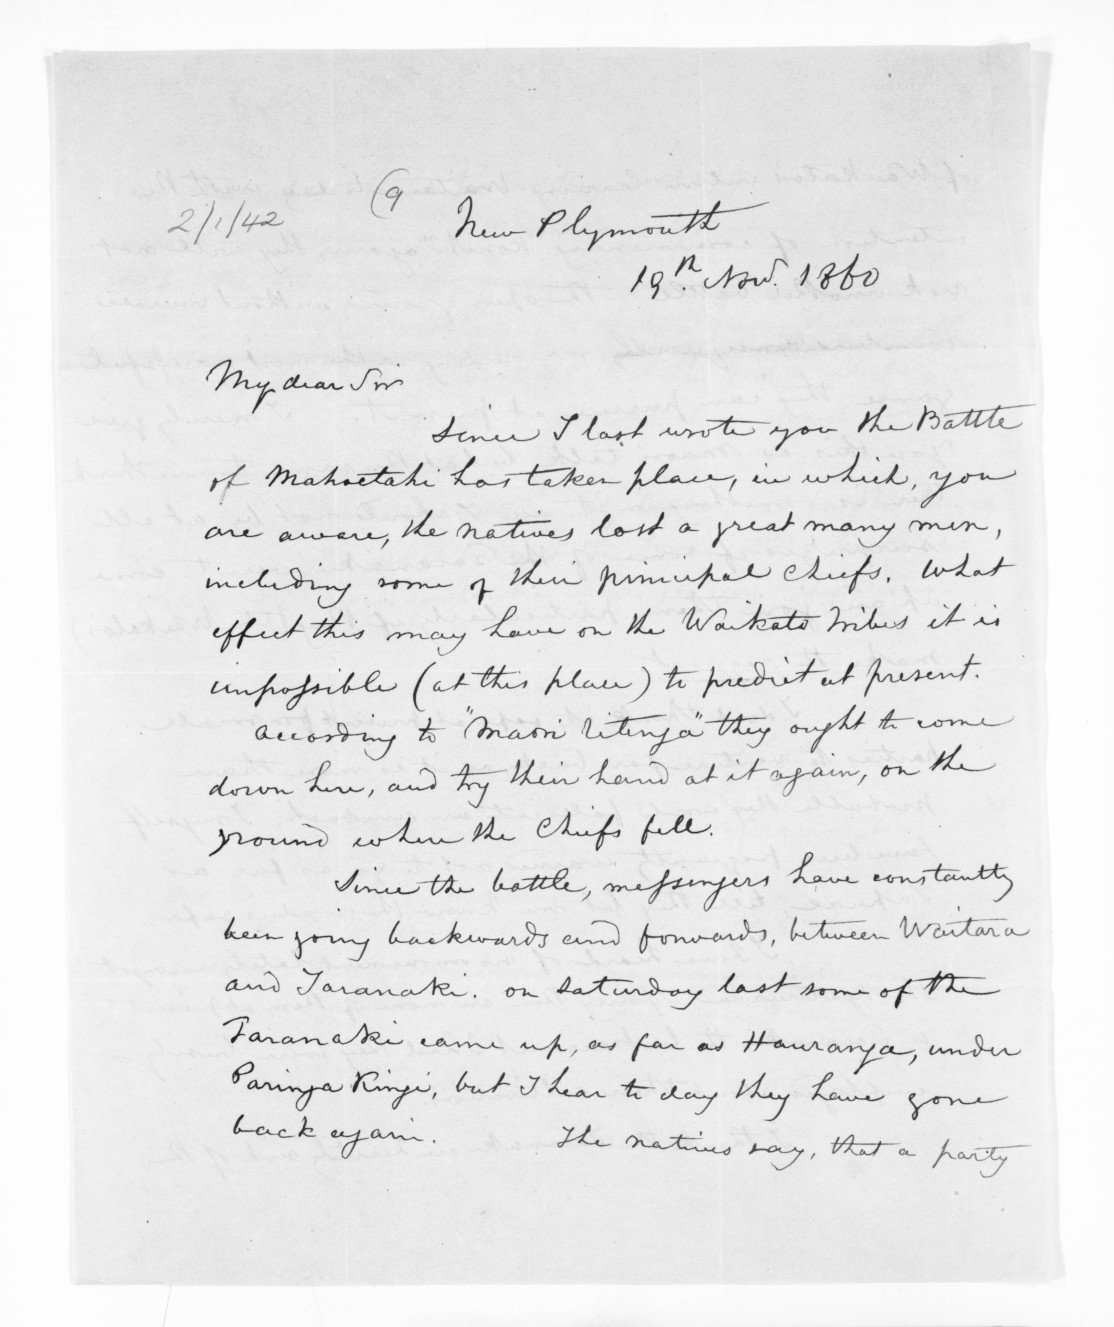 (9
2/1/42
New Plymouth
19th Novr. 1860
My dear Sir
Since I last wrote you the Battle
of Mahoetahi has taken place, in which, you
are aware, the natives lost a great many men,
including some of their principal Chiefs. What
effect this may have on the Waikato Tribes it is
impossible (at this place) to predict at present.
According to "Maori ritenga" they ought to come
down here, and try their hand at it again, on the
ground where the Chiefs fell.
Since the battle, messengers have constantly
been going backwards and forwards, between Waitara
and Taranaki. On Saturday last some of the
Taranaki came up, as far as Hauranga, under
Paringa Kingi, but I hear to day they have gone
back again. The natives say, that a party